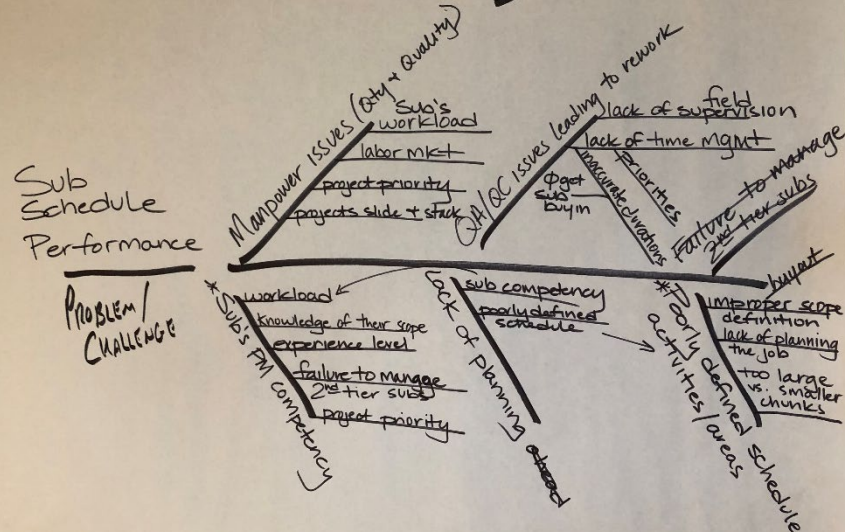 Sub
Schedule
Performance
PROBLEM/
CHALLENGE
Manpower issues (Qty + Quality)
Sub's
workload
labor mkt
project priority
projects slide + stack
QA/QC issues leading to rework
field
lack of supervision
lack of time mgmt
priorities
inaccurate durations
Ø get
sub
buy in
Failure to manage
2nd tier subs
buyout
*Sub's PM competency
workload
knowledge of their scope
experience level
failure to manage
2nd tier subs
project priority
Lack of planning ahead
sub competency
poorly defined
schedule
*Poorly defined schedule
activities/areas
improper scope
definition
lack of planning
the job
too large
vs. smaller
chunks